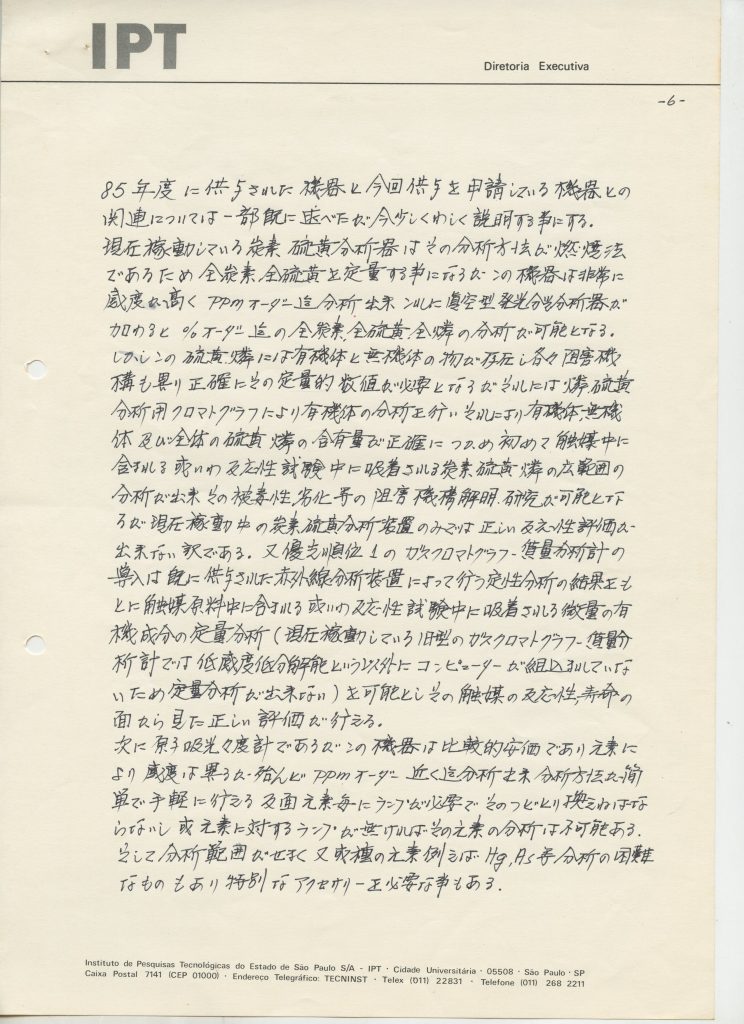 IPT
Diretoria Executiva
-6-
85年度に供与された機器と今回供与を申請している機器との
関連については一部既に述べたが今少しくわしく説明する事にする。
現在稼動している炭素、硫黄分析器はその分析方法が燃焼法
であるため全炭素、全硫黄を定量する事になるがこの機器は非常に
感度が高くppmオーダー迄分析出来、これに真空型発光分光分析器が
加わると%オーダー迄の全炭素、全硫黄、全燐の分析が可能となる。
しかしこの硫黄、燐には有機体と無機体の物が存在し各々阻害機
構も異り正確にその定量的数値が必要となるがそれには燐、硫黄
分析用クロマトグラフにより有機体の分析を行いそれにより有機体、無機
体及び全体の硫黄、燐の含有量が正確につかめ初めて触媒中に
含まれる或いわ反応性試験中に吸着される炭素、硫黄、燐の広範囲の
分析が出来その被毒性、劣化等の阻害機構解明、研究が可能とな
るが現在稼動中の炭素、硫黄分析装置のみでは正しい反応性評価が
出来ない訳である。又優先順位1のガスクロマトグラフー質量分析計の
導入は既に供与された赤外線分析装置によって行う定性分析の結果をも
とに触媒原料中に含まれる或いわ反応性試験中に吸着される微量の有
機成分の定量分析(現在稼動している旧型のガスクロマトグラフー質量分
析計では低感度低分解能という以外にコンピューターが組込まれていな
いため定量分析が出来ない)を可能としその触媒の反応性、寿命の
面から見た正しい評価が行える。
次に原子吸光々度計であるがこの機器は比較的安価であり元素に
より感度は異るが殆んどppmオーダー近く迄分析出来、分析方法が簡
単で手軽に行える反面元素毎にランプが必要でそのつどとり換えねばな
らないし或元素に対するランプが無ければその元素の分析は不可能ある。
そして分析範囲がせまく又或種の元素例えば Hg, As等分析の困難
なものもあり特別なアクセサリーを必要な事もある。
Instituto de Pesquisas Tecnológicas do Estado de São Paulo S/A - IPT · Cidade Universitária · 05508 · São Paulo · SP
Caixa Postal 7141 (CEP 01000) · Endereço Telegráfico: TECNINST · Telex (011) 22831 · Telefone (011) 268 2211